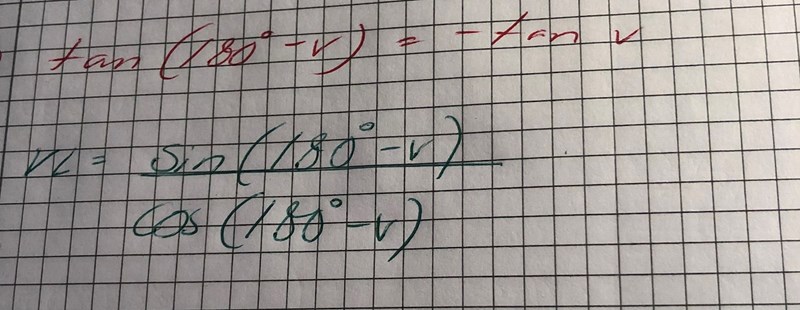 tan (180° - v) = - tan v
VL = sin (180° - v)
cos (180° - v)